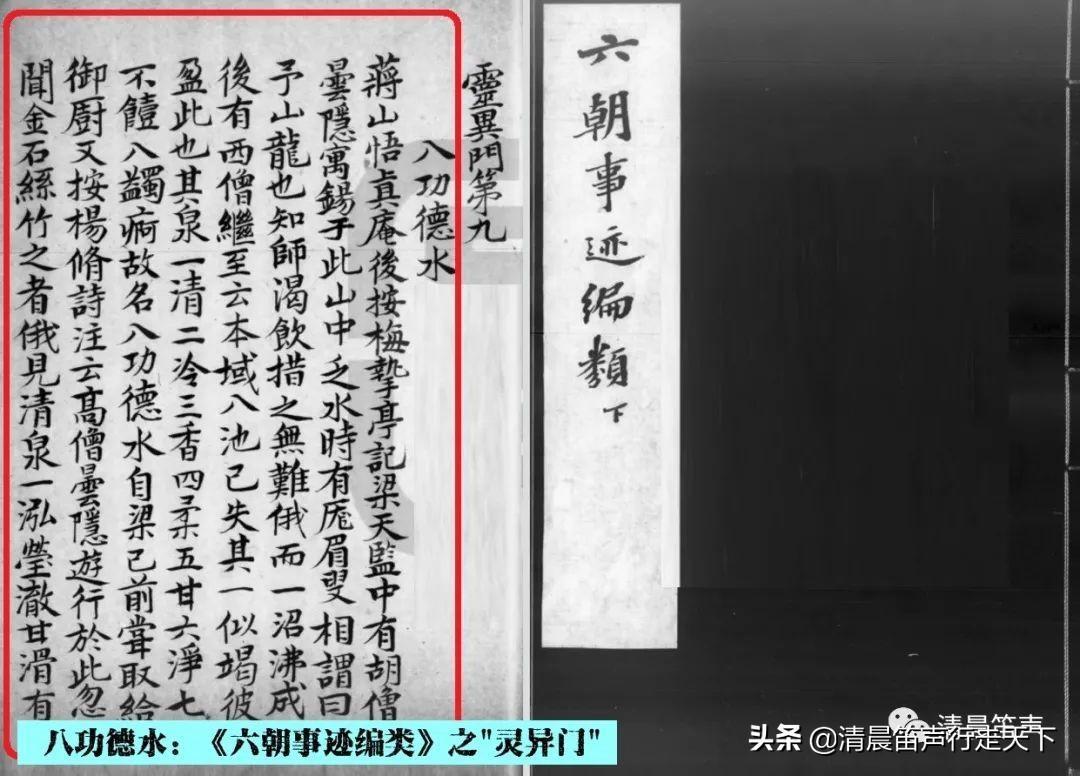 六朝事迹编類下
靈異門第九
八功德水
蔣山悟真庵後按梅摯亭記梁天監中有胡僧
曇隱寓錫于此山中乏水時有厖眉叟相謂曰
予山龍也知師渴飲措之無難俄而一沼沸成
後有西僧繼至云本域八池已失其一似竭彼
盈此也其泉一清二冷三香四柔五甘六淨七
不饐八蠲痾故名八功德水自梁已前嘗取給
御廚又按楊脩詩注云高僧曇隱遊行於此忽
聞金石絲竹之者俄見清泉一泓瑩澈甘滑有
八功德水：《六朝事迹编类》之"灵异门"
清晨笛声
头条 @清晨笛声行走天下